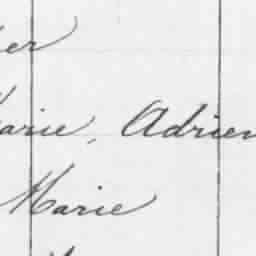 er
arie, Adrien
Marie